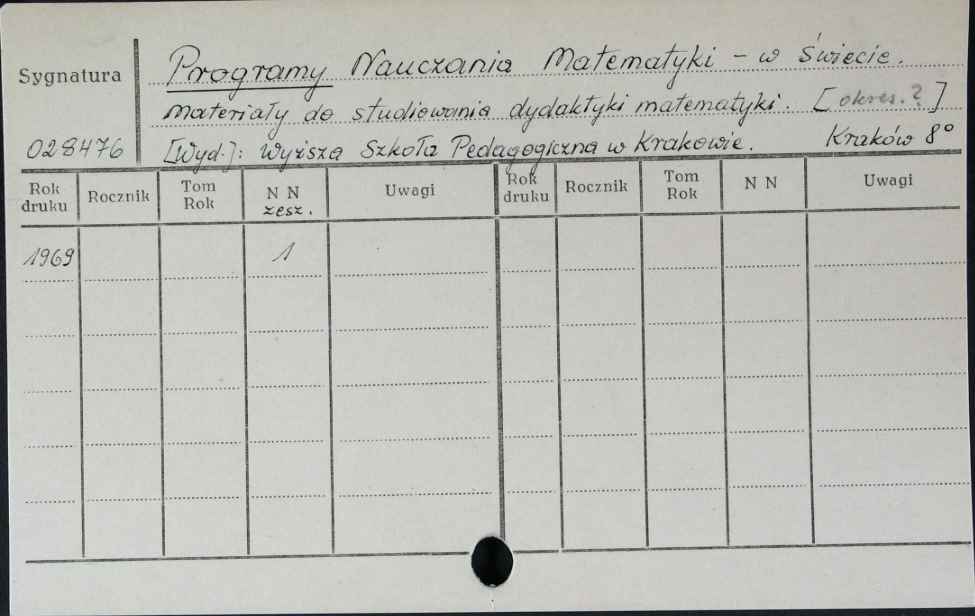 Sygnatura
Programy Nauczania Matematyki - w Świecie.
Materiały do studiowania dydaktyki matematyki. [okres.?]
028476
[Wyd.]: Wyższa Szkoła Pedagogiczna w Krakowie. Kraków 8°
Rok druku Rocznik Tom Rok N N zesz. Uwagi Rok druku Rocznik Tom Rok N N Uwagi
1969 1